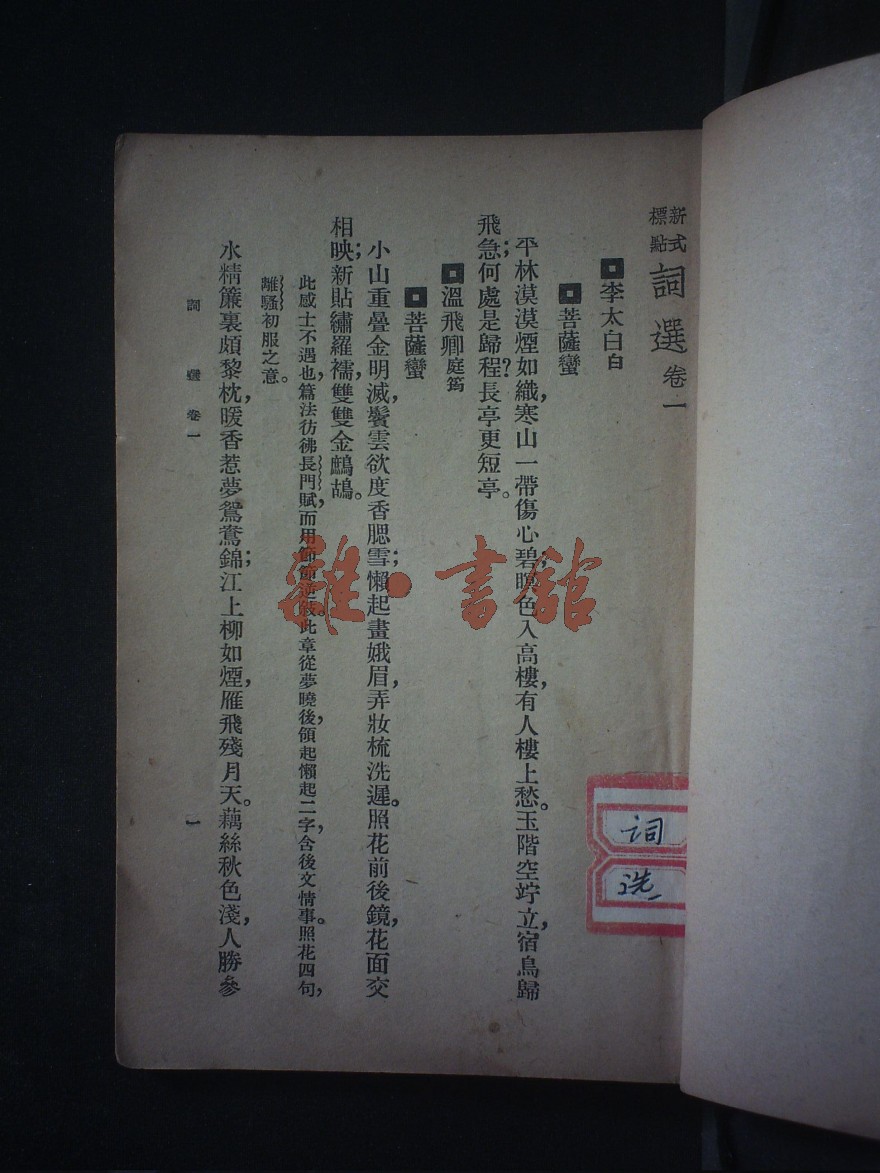 新式標點 詞選 卷一
李太白白
菩薩蠻
平林漠漠煙如織，寒山一帶傷心碧；暝色入高樓，有人樓上愁。玉階空竚立，宿鳥歸
飛急；何處是歸程？長亭更短亭。
溫飛卿庭筠
菩薩蠻
小山重疊金明滅，鬢雲欲度香腮雪；懶起畫娥眉，弄妝梳洗遲。照花前後鏡，花面交
相映；新貼繡羅襦，雙雙金鷓鴣。
此感士不遇也，篇法彷彿長門賦，而用節節逆敍。此章從夢曉後，領起懶起二字，含後文情事。照花四句，
離騷初服之意。
水精簾裏頗黎枕，暖香惹夢鴛鴦錦；江上柳如煙，雁飛殘月天。藕絲秋色淺，人勝參
詞選 卷一
一
雜·書館
词
选